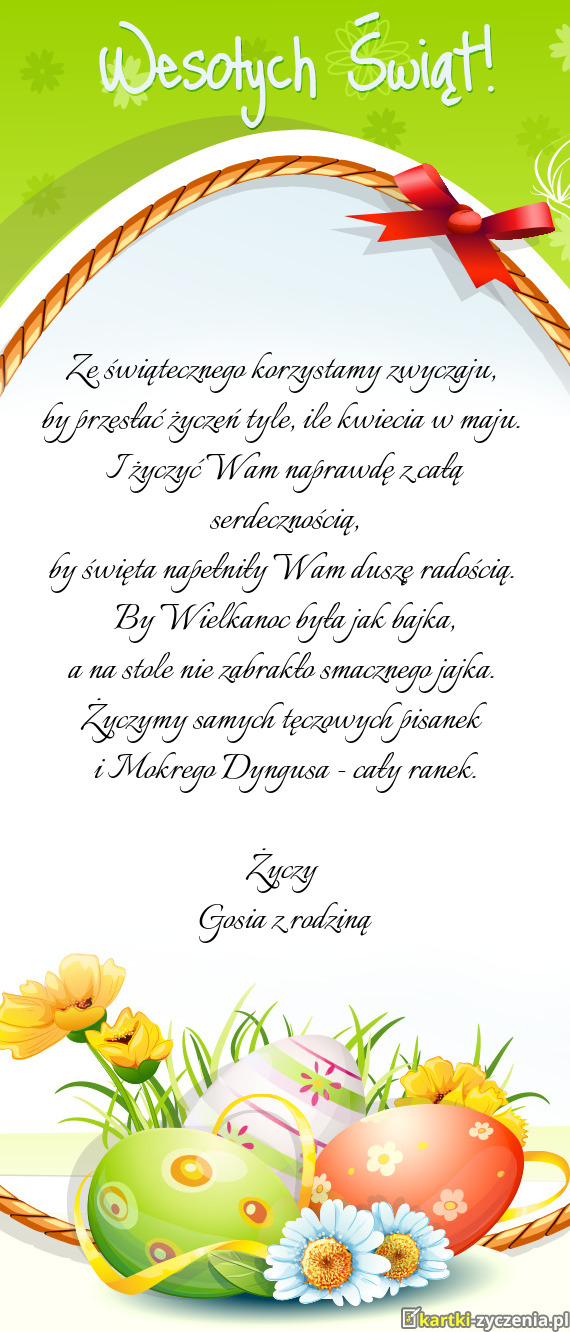 Wesołych Świąt!
Ze świątecznego korzystamy zwyczaju,
by przesłać życzeń tyle, ile kwiecia w maju.
I życzyć Wam naprawdę z całą
serdecznością,
by święta napełniły Wam duszę radością.
By Wielkanoc była jak bajka,
a na stole nie zabrakło smacznego jajka.
Życzymy samych tęczowych pisanek
i Mokrego Dyngusa - cały ranek.
Życzy
Gosia z rodziną
kartki-zyczenia.pl